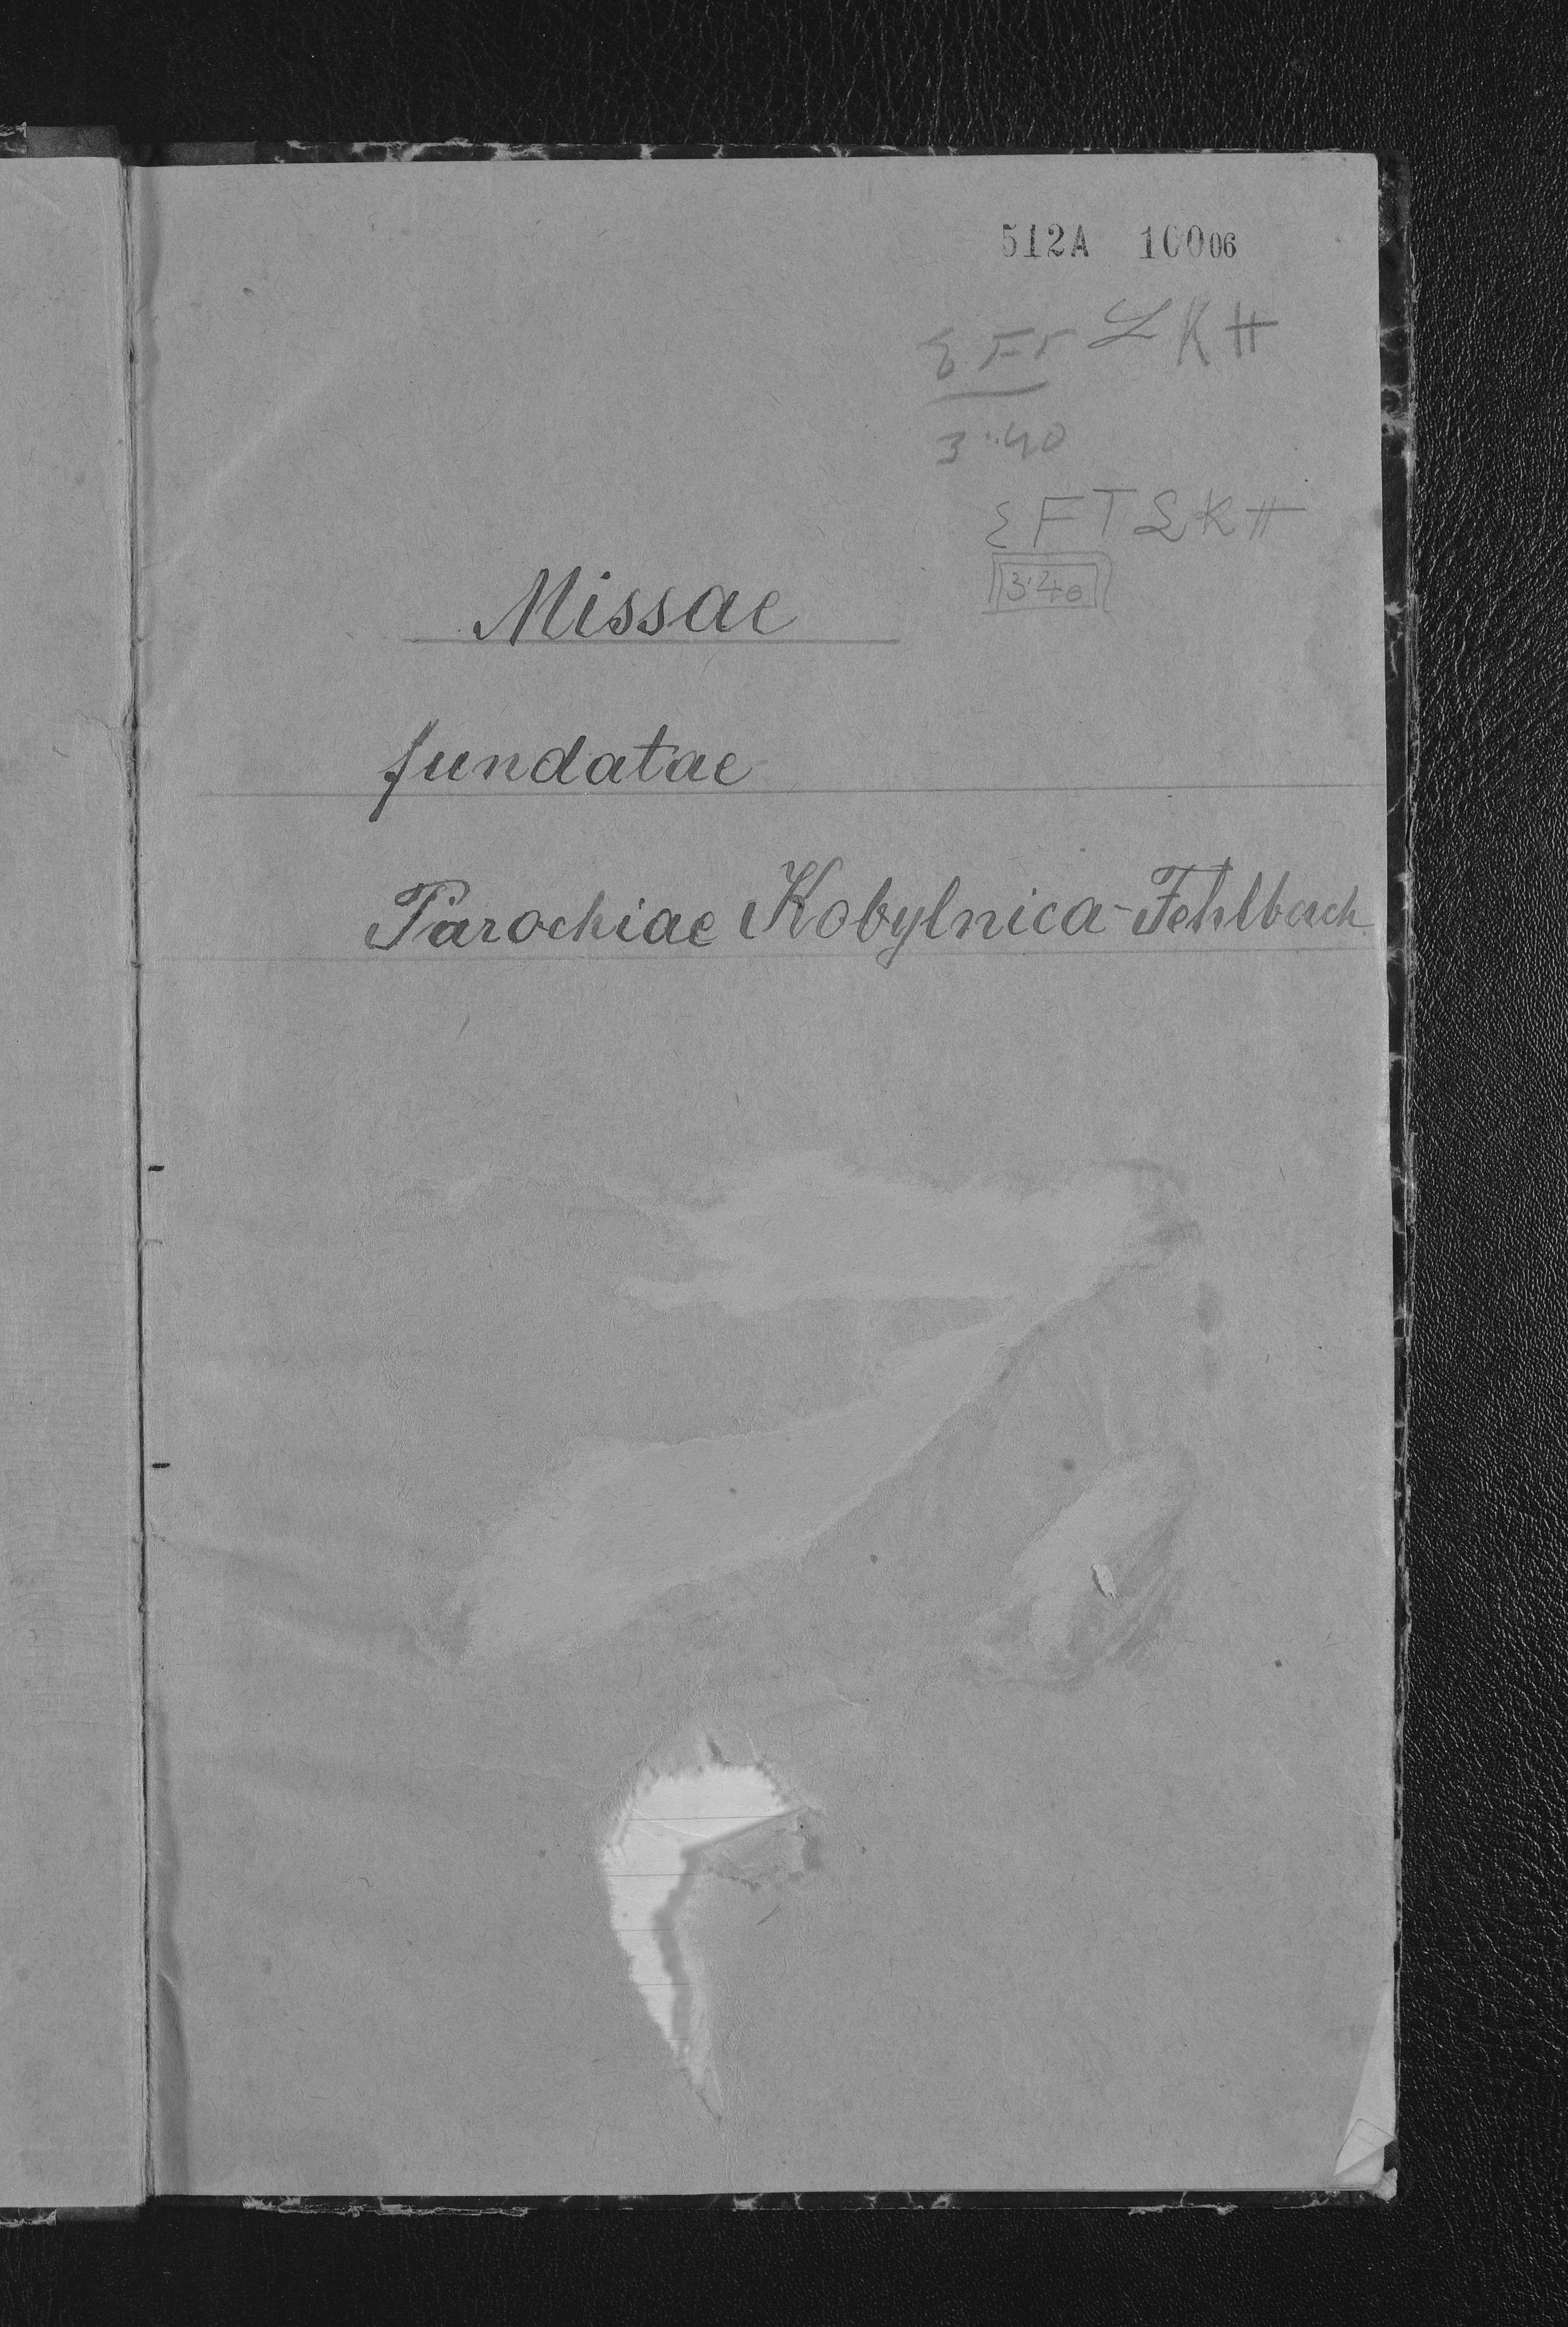 512A 10006
E Fr L K H
3·40
E F T L K H
3·40
Missae
fundatae
Parochiae Kobylnica-Fehlbach